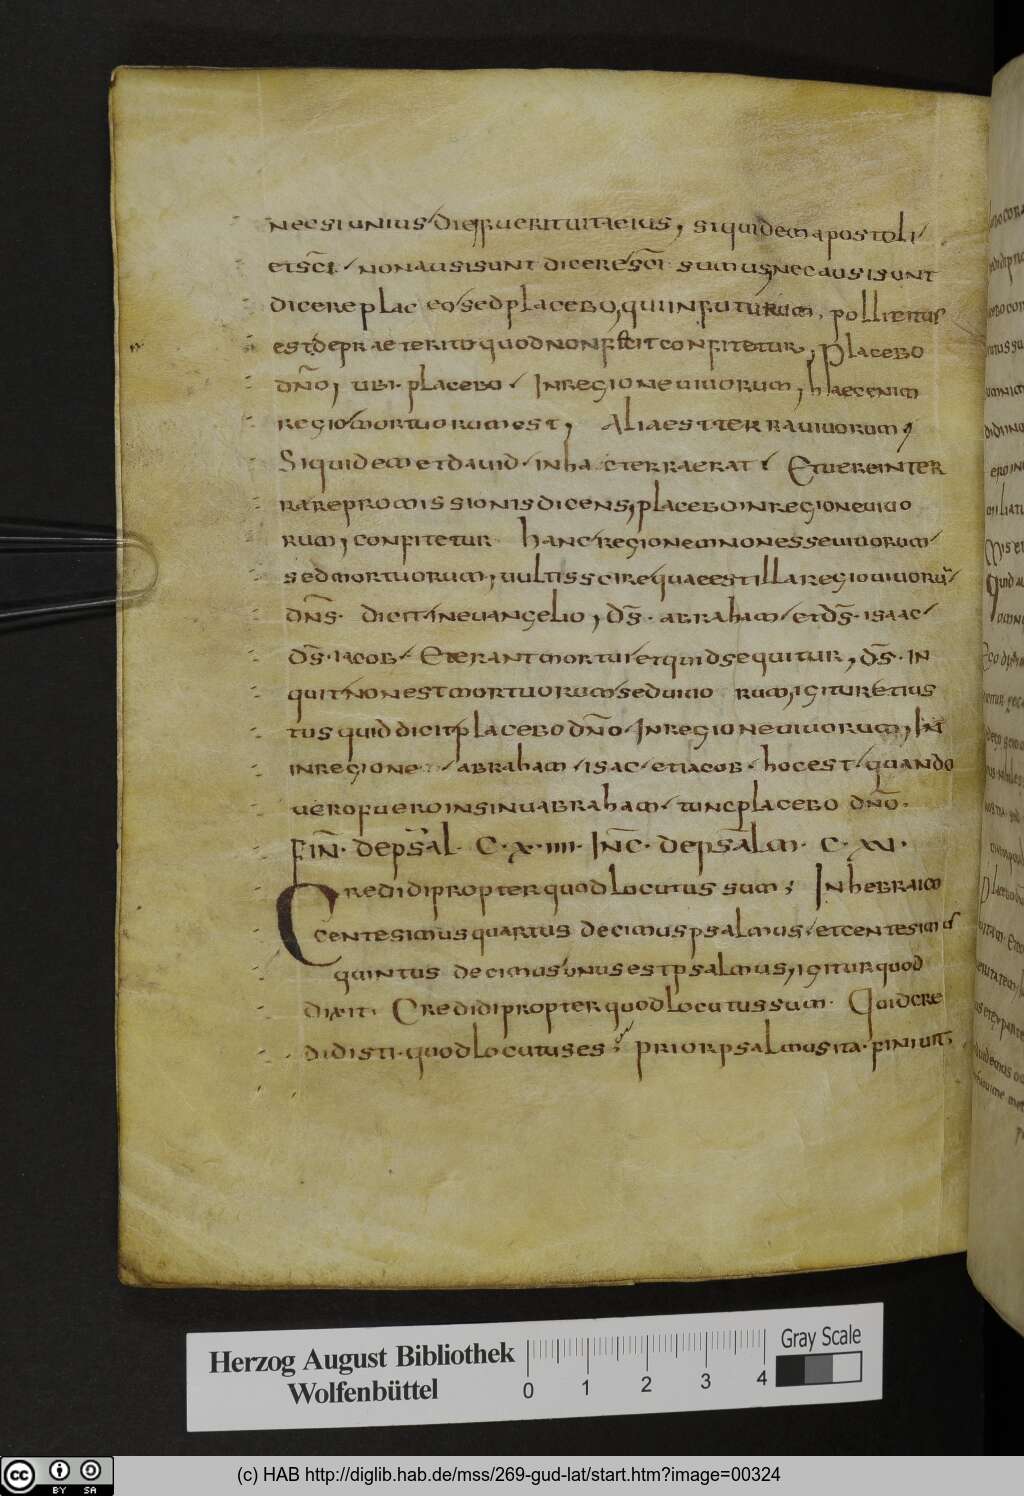 necsi unius die fuerit uita eius, siquidem apostoli
et sc̄i nonausisunt dicere sc̄i sumus, nec ausisunt
dicere placeo sed placebo, qui infuturum, pollicitus
est, de praeterito quod non fecit confitetur, Placebo
dn̄o, ubi placebo. In regione uiuorum, haec enim
regio mortuorum est, Alia est terra uiuorum,
Siquidem et dauid in hac terra erat. Et uere in ter
ra repromissionis dicens, placebo in regione uiuo
rum, confitetur hanc regionem non esse uiuorum
sed mortuorum, uultis scire quae est illa regio uiuorū
dn̄s. dicit in euangelio, ds̄. abraham et ds̄. isaac
ds̄. iacob. Et erant mortui et quid sequitur, ds̄. in
quit non est mortuorum sed uiuo rum, igitur et ius
tus quid dicit placebo dn̄o. In regione uiuorum, In
in regione abraham isac et iacob hoc est quando
uero fuero in sinu abraham tunc placebo dn̄o.
Fin̄. de psal̄. C. x. iiii. Inc̄. de psal̄m. C. xv.
Credidi propter quod locutus sum; In hebraico
centesimus quartus decimus psalmus et centesimus
quintus decimus unus est psalmus, igitur quod
dixit. Credidi propter quod locutus sum. Quid cre
didisti. quod locutus es; prior psalmus ita finiuit,
Herzog August Bibliothek
Wolfenbüttel
0 1 2 3 4
Gray Scale
cc BY SA
(c) HAB http://diglib.hab.de/mss/269-gud-lat/start.htm?image=00324